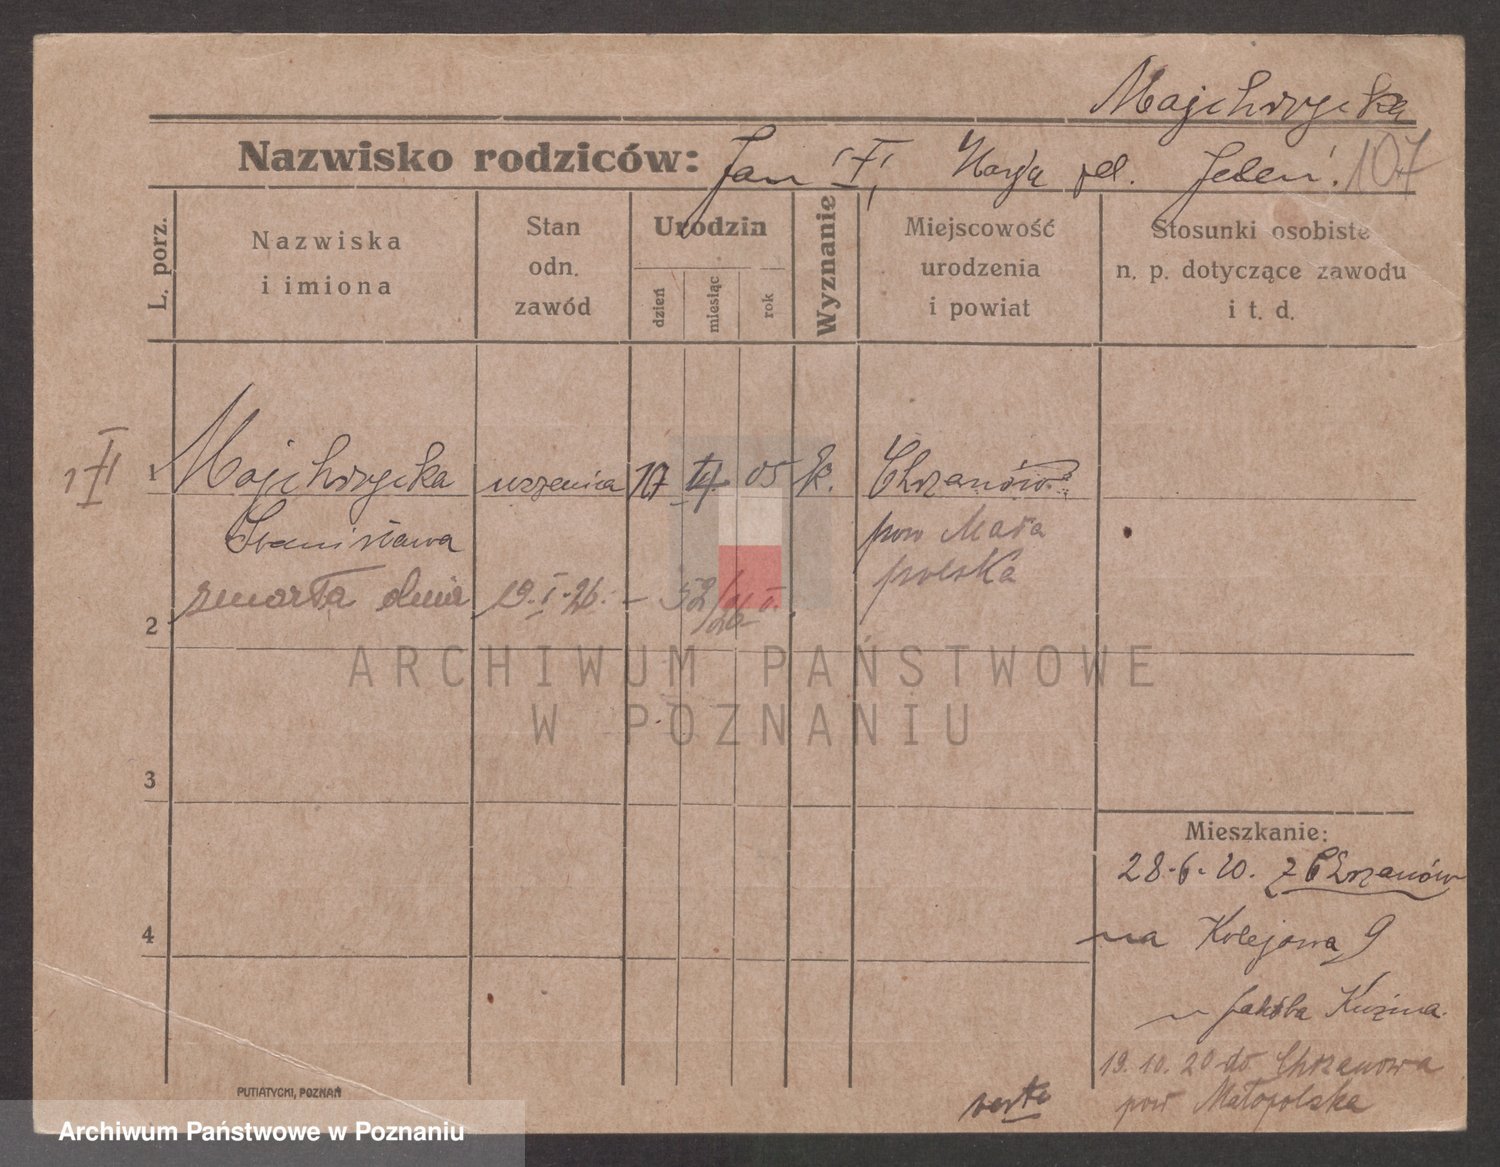 Majchrzycka
Nazwisko rodziców: Jan Marja Jeleń. 107
L. porz.
Nazwiska
i imiona
Stan
odn.
zawód
Urodzin
dzień
miesiąc
rok
Wyznanie
Miejscowość
urodzenia
i powiat
Stosunki osobiste
n. p. dotyczące zawodu
i t. d.
1 Majchrzycka uczenica 17 05 k. Chrzanów
Stanisława pow Mało
polska
zmarła dnia 19.I.26. – 52/26
2
ARCHIWUM PAŃSTWOWE
W POZNANIU
3
4
Mieszkanie:
28.6.20. z Chrzanów
na Kolejowa 9
u Jakóba Kuźma.
19.10.20 do Chrzanowa
pow Małopolska
verte
PUTIATYCKI, POZNAŃ
Archiwum Państwowe w Poznaniu